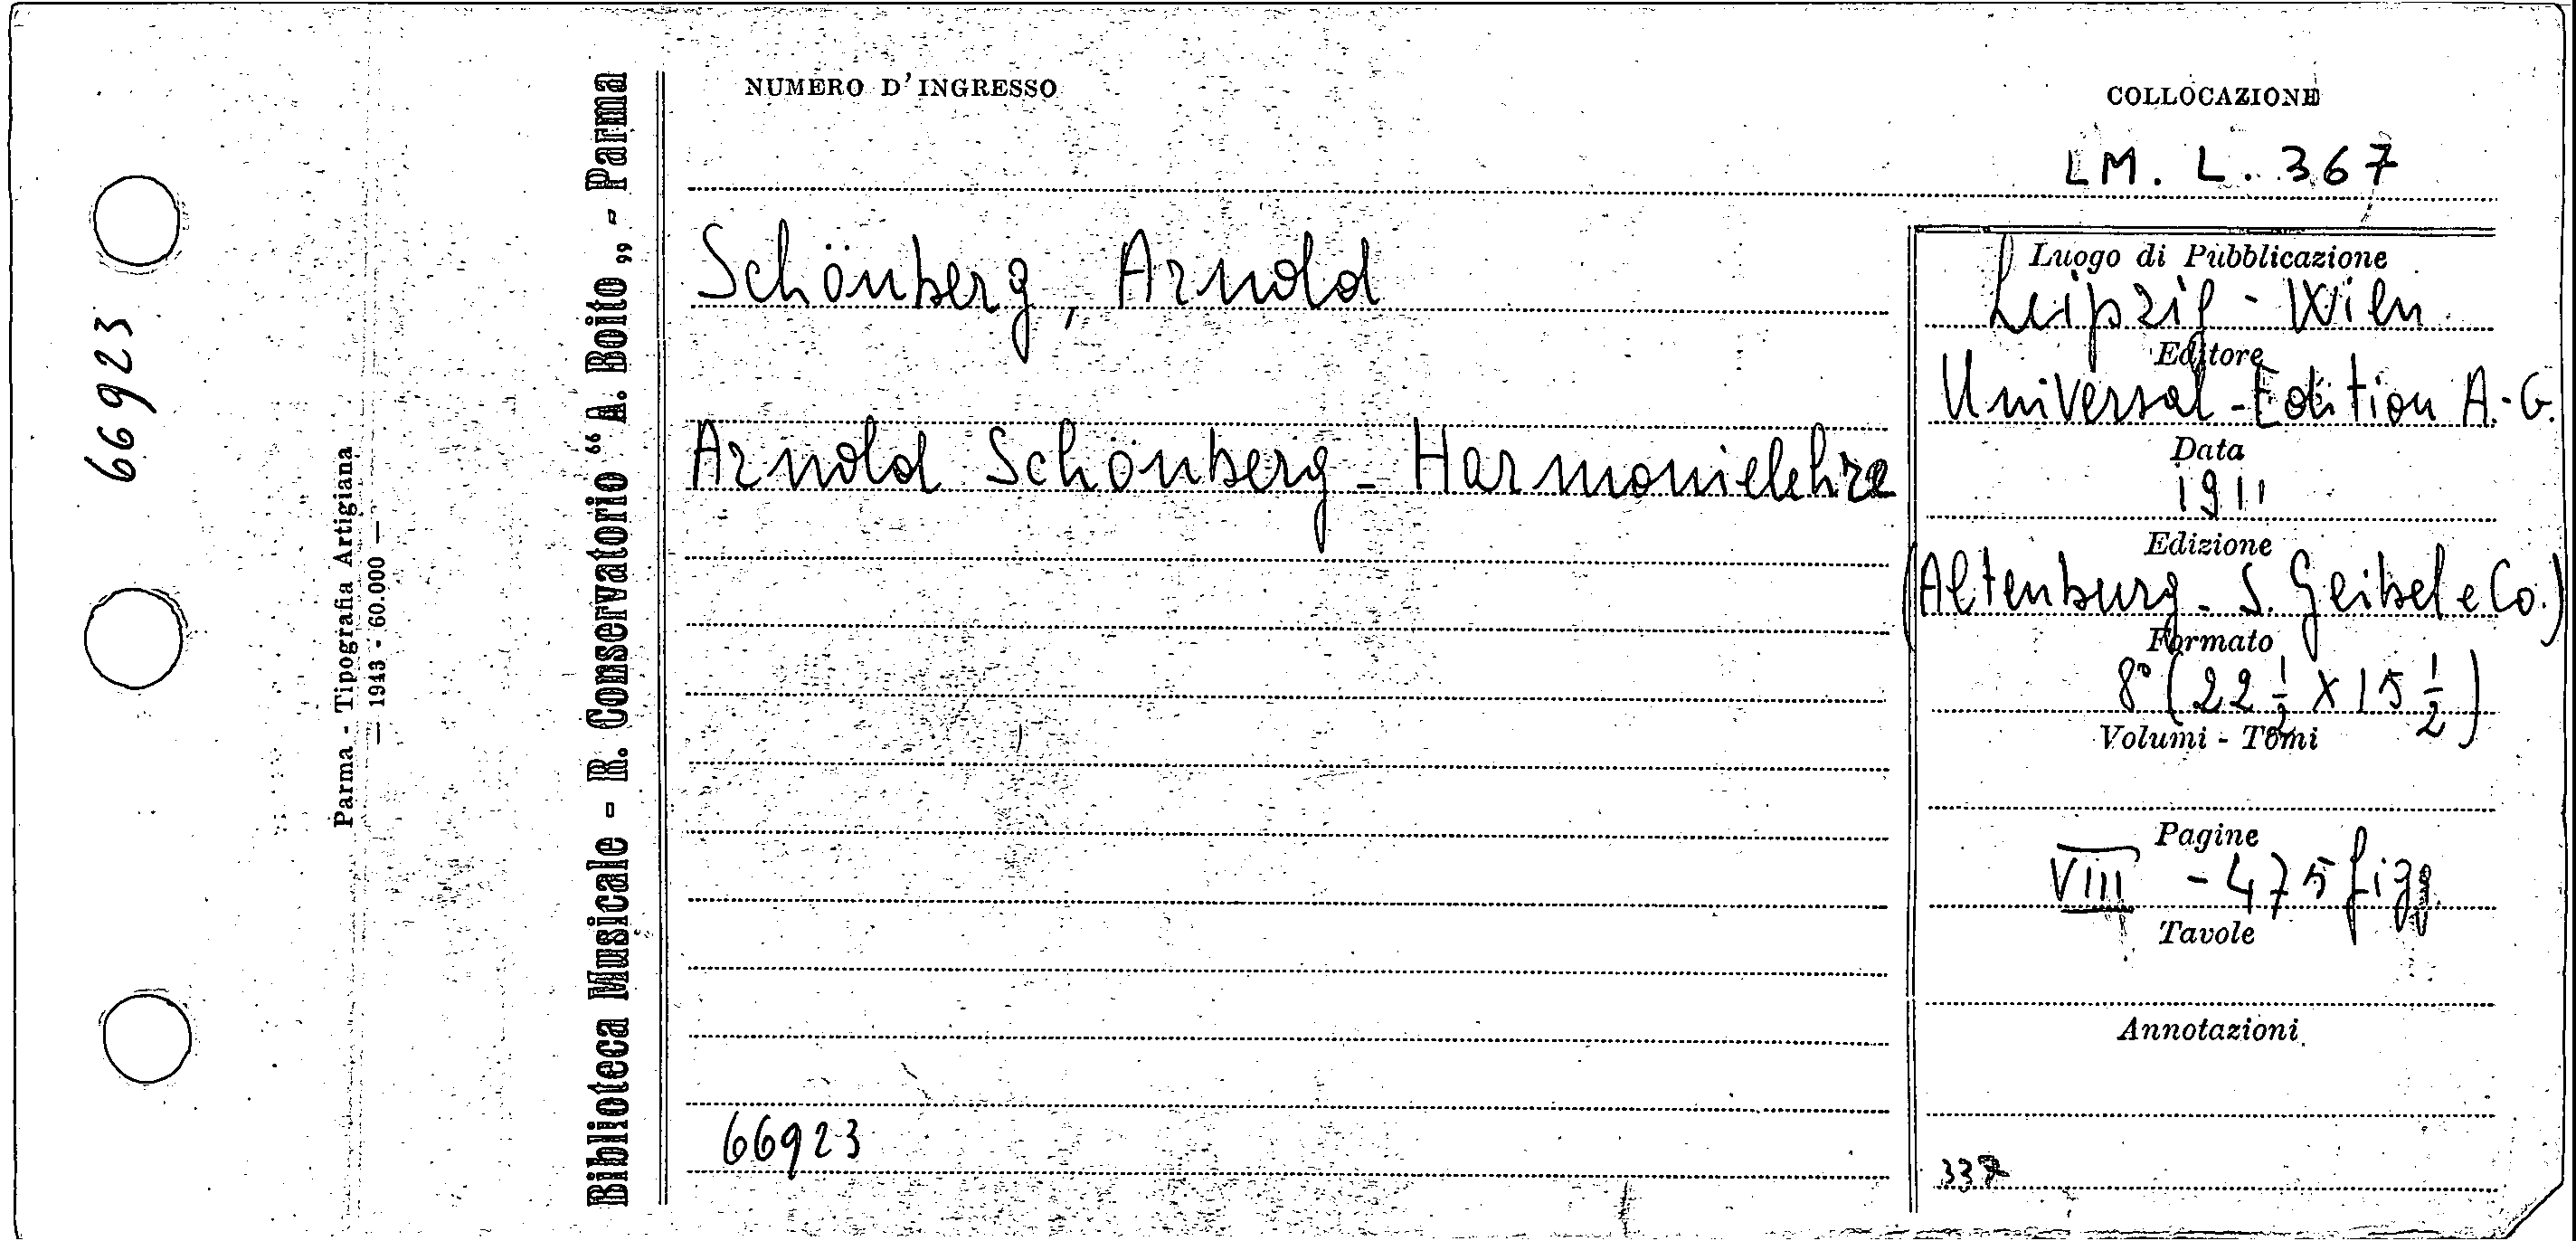 NUMERO D'INGRESSO
COLLOCAZIONE
LM. L. 367
Schönberg, Arnold
Arnold Schönberg - Harmonielehre
66923
Luogo di Pubblicazione
Leipzig - Wien
Editore
Universal-Edition A.-G.
Data
1911
Edizione
(Altenburg - S. Geibel e Co.)
Formato
8° (22 1/2 X 15 1/2)
Volumi - Tomi
Pagine
VIII - 475 figg.
Tavole
Annotazioni
337
66923
Parma - Tipografia Artigiana
— 1943 - 60.000 —
Biblioteca Musicale - R. Conservatorio “A. Boito„ - Parma